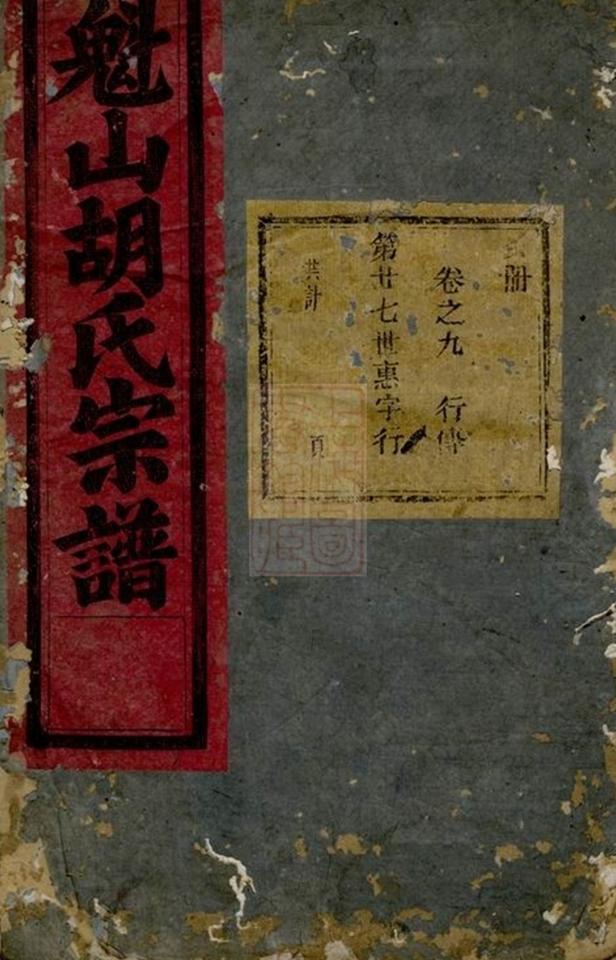 魁山胡氏宗譜
冊
卷之九 行傳
第廿七世惠字行
共計 頁